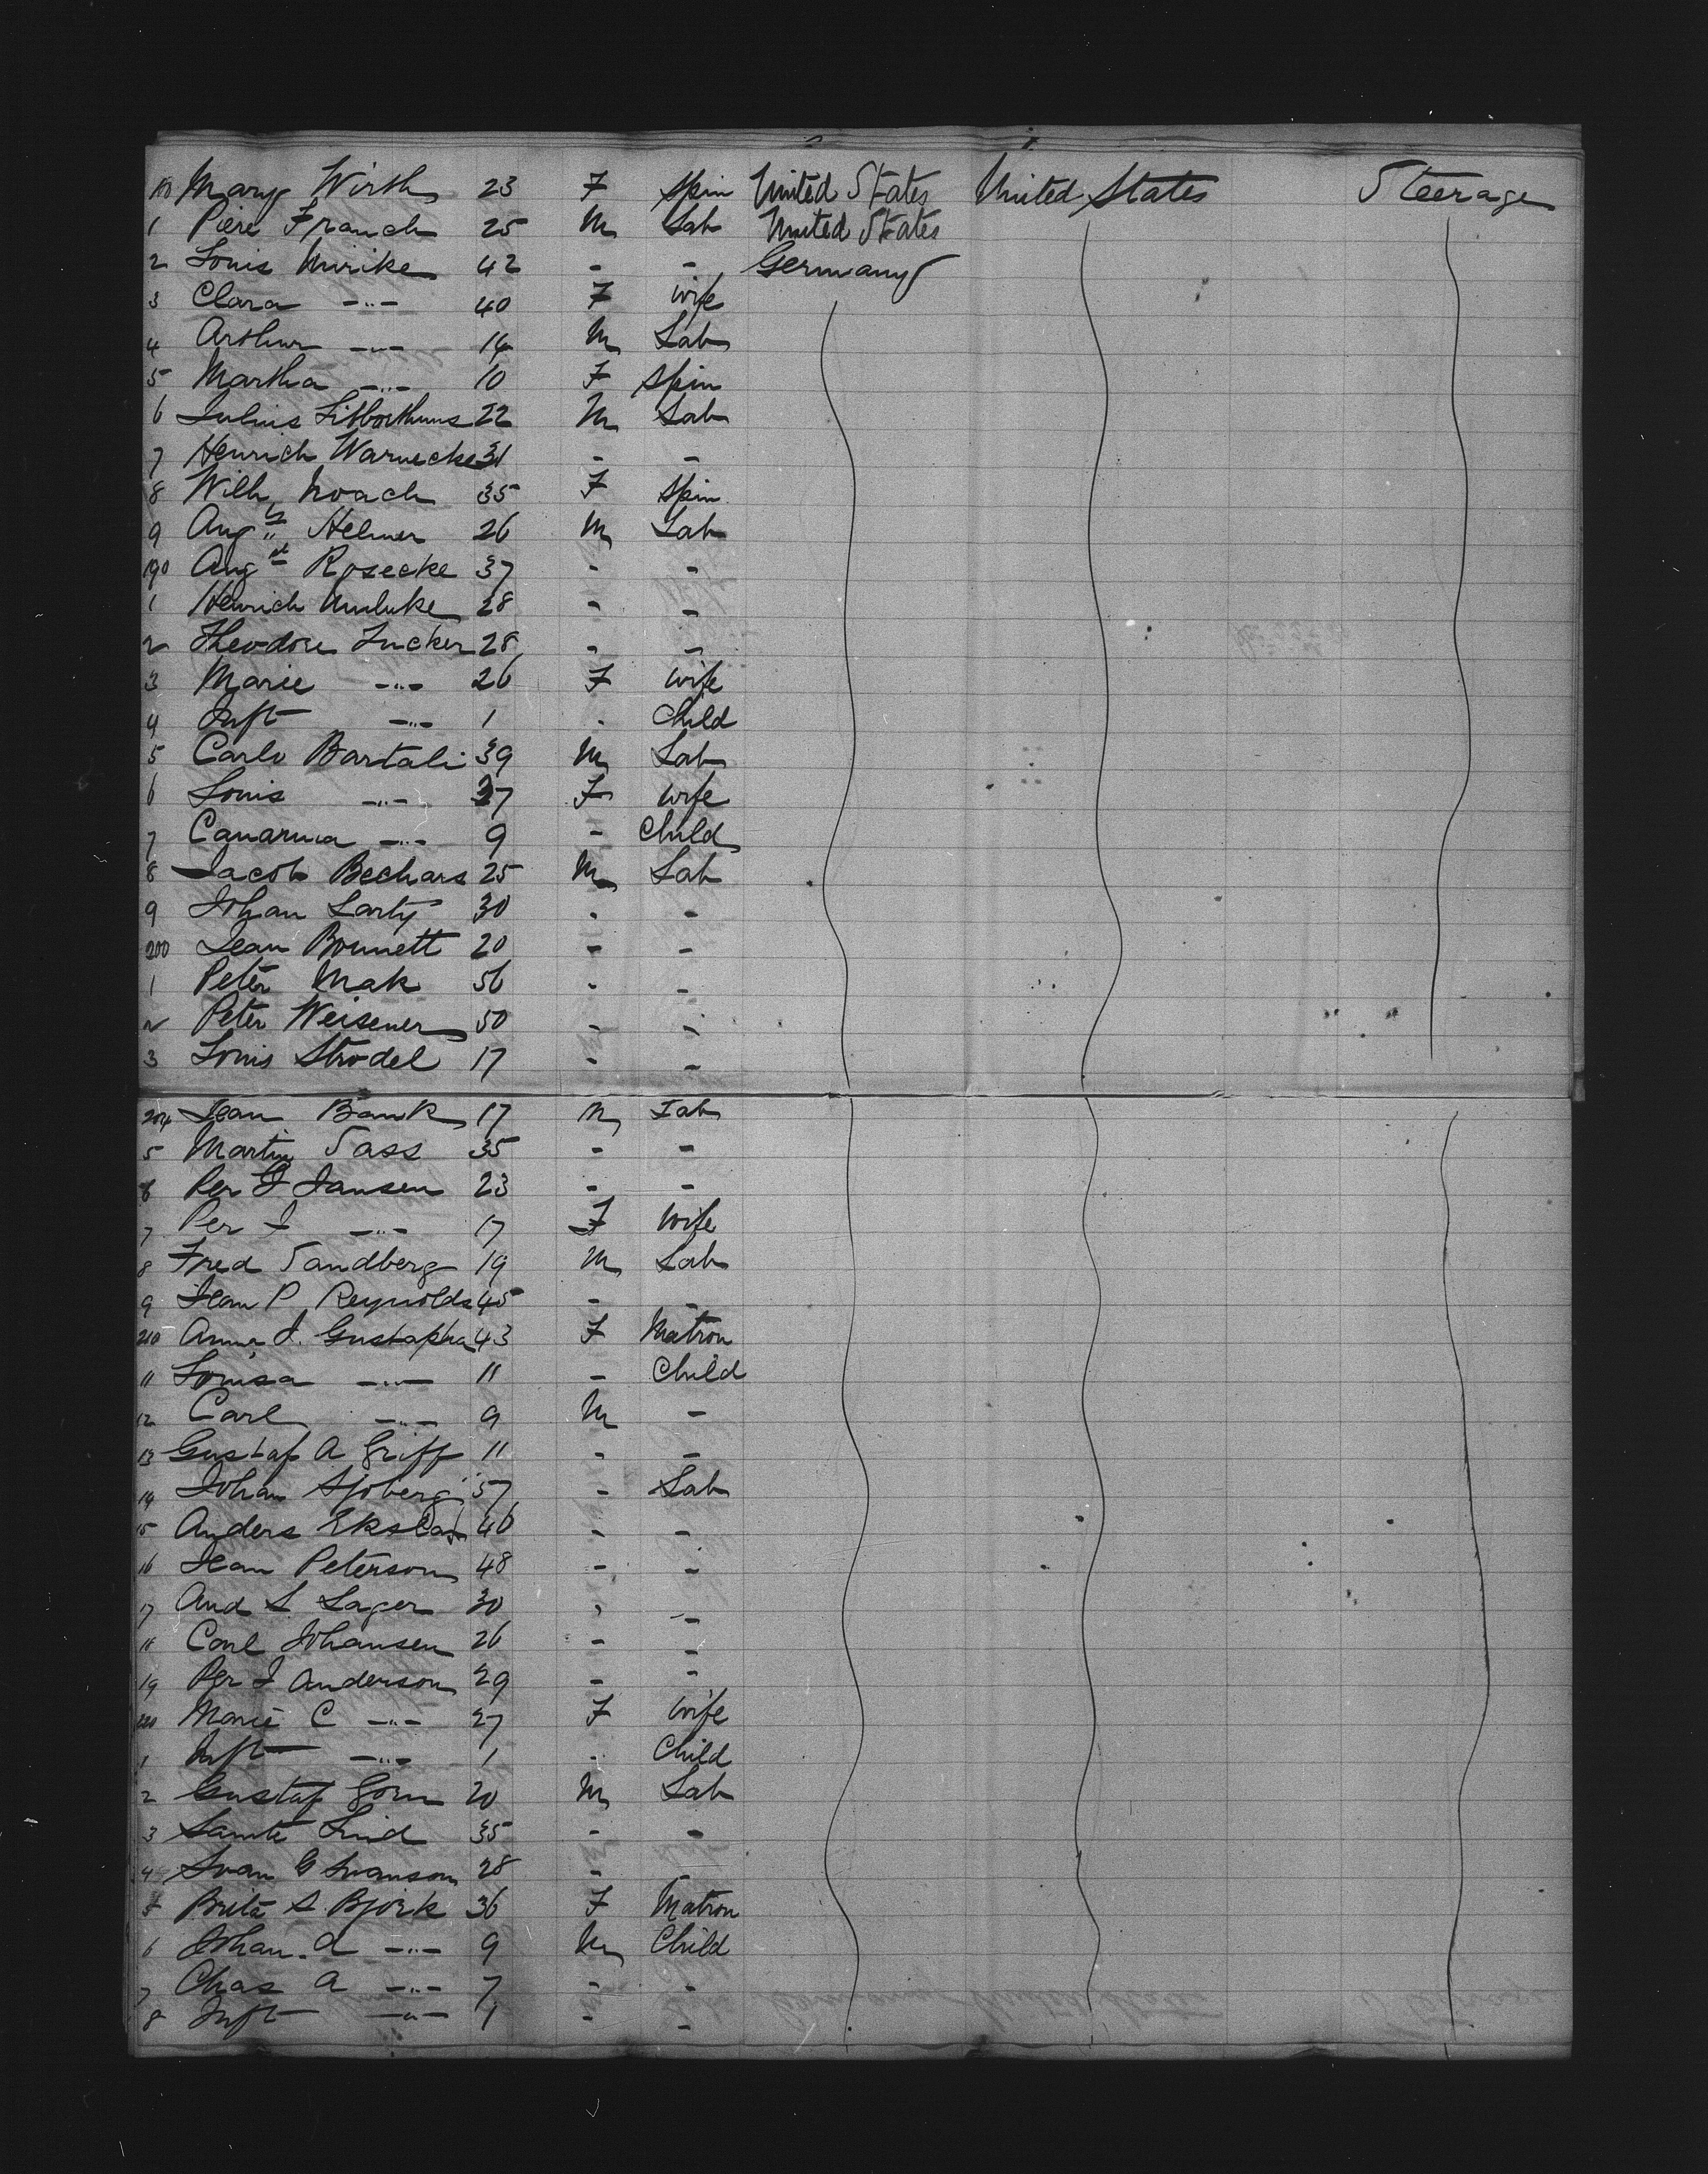 180 Mary Wirth 23 F Spin United States United States Steerage
1 Piere Franch 25 M Lab United States
2 Louis Mirike 42 - - Germany
3 Clara -"- 40 F Wife
4 Arthur -"- 14 M Lab
5 Martha -"- 10 F Spin
6 Julius 22 M Lab
7 Henrich Warnecke 31 - -
8 Wilh Noach 35 F Spin
9 Aug Helmer 26 M Lab
190 Augst Rosecke 37 - -
1 Henrich 28 - -
2 Theodore Zucker 28 - -
3 Marie -"- 26 F Wife
4 Inft -"- 1 - Child
5 Carlo Bartali 39 M Lab
6 Louis -"- 37 F Wife
7 -"- 9 - Child
8 Jacob Bechars 25 M Lab
9 Johan Larty 30 - -
200 Jean Bonnett 20 - -
1 Peter Mak 56 - -
2 Peter Weisener 50 - -
3 Louis Strodel 17 - -
204 Jean Bank 17 M Lab
5 Martin Sass 35 - -
6 Per J Jansen 23 - -
7 Per J -"- 17 F Wife
8 Fred Sandberg 19 M Lab
9 Jean P Reynolds 45 - -
210 Anna J. 43 F Matron
11 Louisa -"- 11 - Child
12 Carl -"- 9 M -
13 Gustaf A Griff 11 - -
14 Johan Sjoberg 57 - Lab
15 Anders 46 - -
16 Jean Peterson 48 - -
17 And L Lager 30 - -
18 Carl Johansen 26 - -
19 Per J Anderson 29 - -
220 Marie C -"- 27 F Wife
1 Inft -"- 1 - Child
2 Gustaf 20 M Lab
3 Lind 35 - -
4 Svan G Swanson 28 - -
5 Brita S. Bjork 36 F Matron
6 Johan. A -"- 9 M Child
7 Chas A -"- 7 - -
8 Inft -"- 1 - -